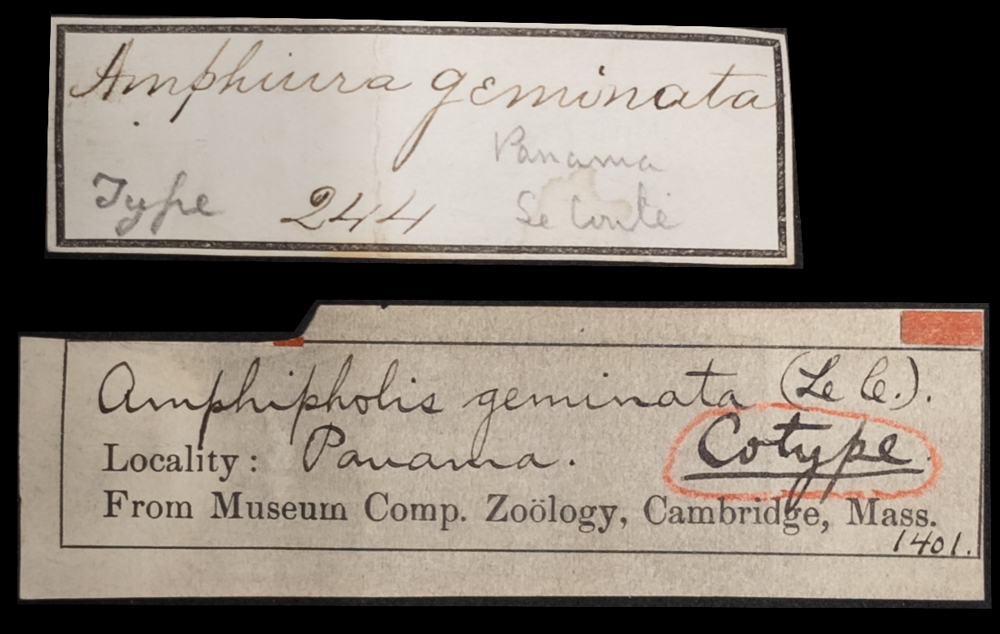 Amphiura geminata
Panama
Type 244 Le Conte
Amphipholis geminata (Le C.).
Cotype
Locality: Panama.
From Museum Comp. Zoölogy, Cambridge, Mass.
1401.